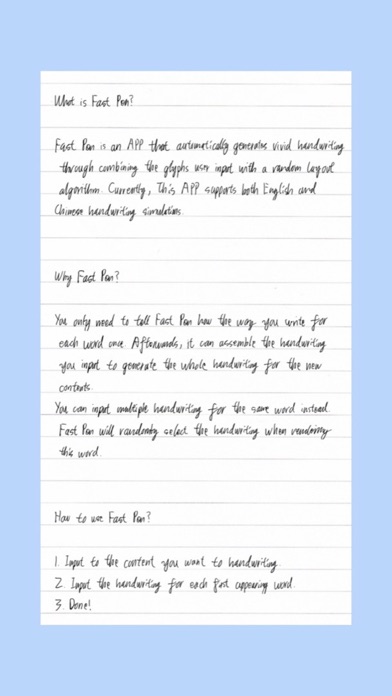 What is Fast Pen?
Fast Pen is an APP that automatically generates vivid handwriting
through combining the glyphs user input with a random layout
algorithm. Currently, This APP supports both English and
Chinese handwriting simulations.
Why Fast Pen?
You only need to tell Fast Pen how the way you write for
each word once. Afterwards, it can assemble the handwriting
you input to generate the whole handwriting for the new
contents.
You can input multiple handwriting for the same word instead.
Fast Pen will randomly select the handwriting when rendering
this word.
How to use Fast Pen?
1. Input to the content you want to handwriting.
2. Input the handwriting for each first appearing word.
3. Done!